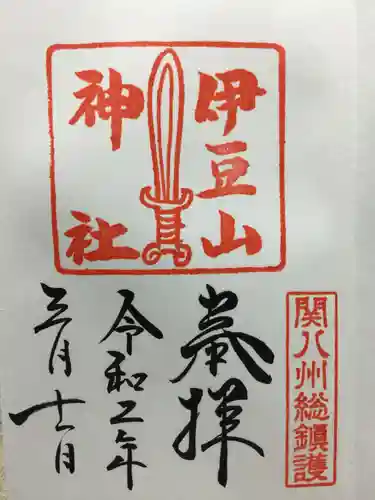 伊豆山
神社
関八州総鎮護
奉拝
令和二年
三月十一日